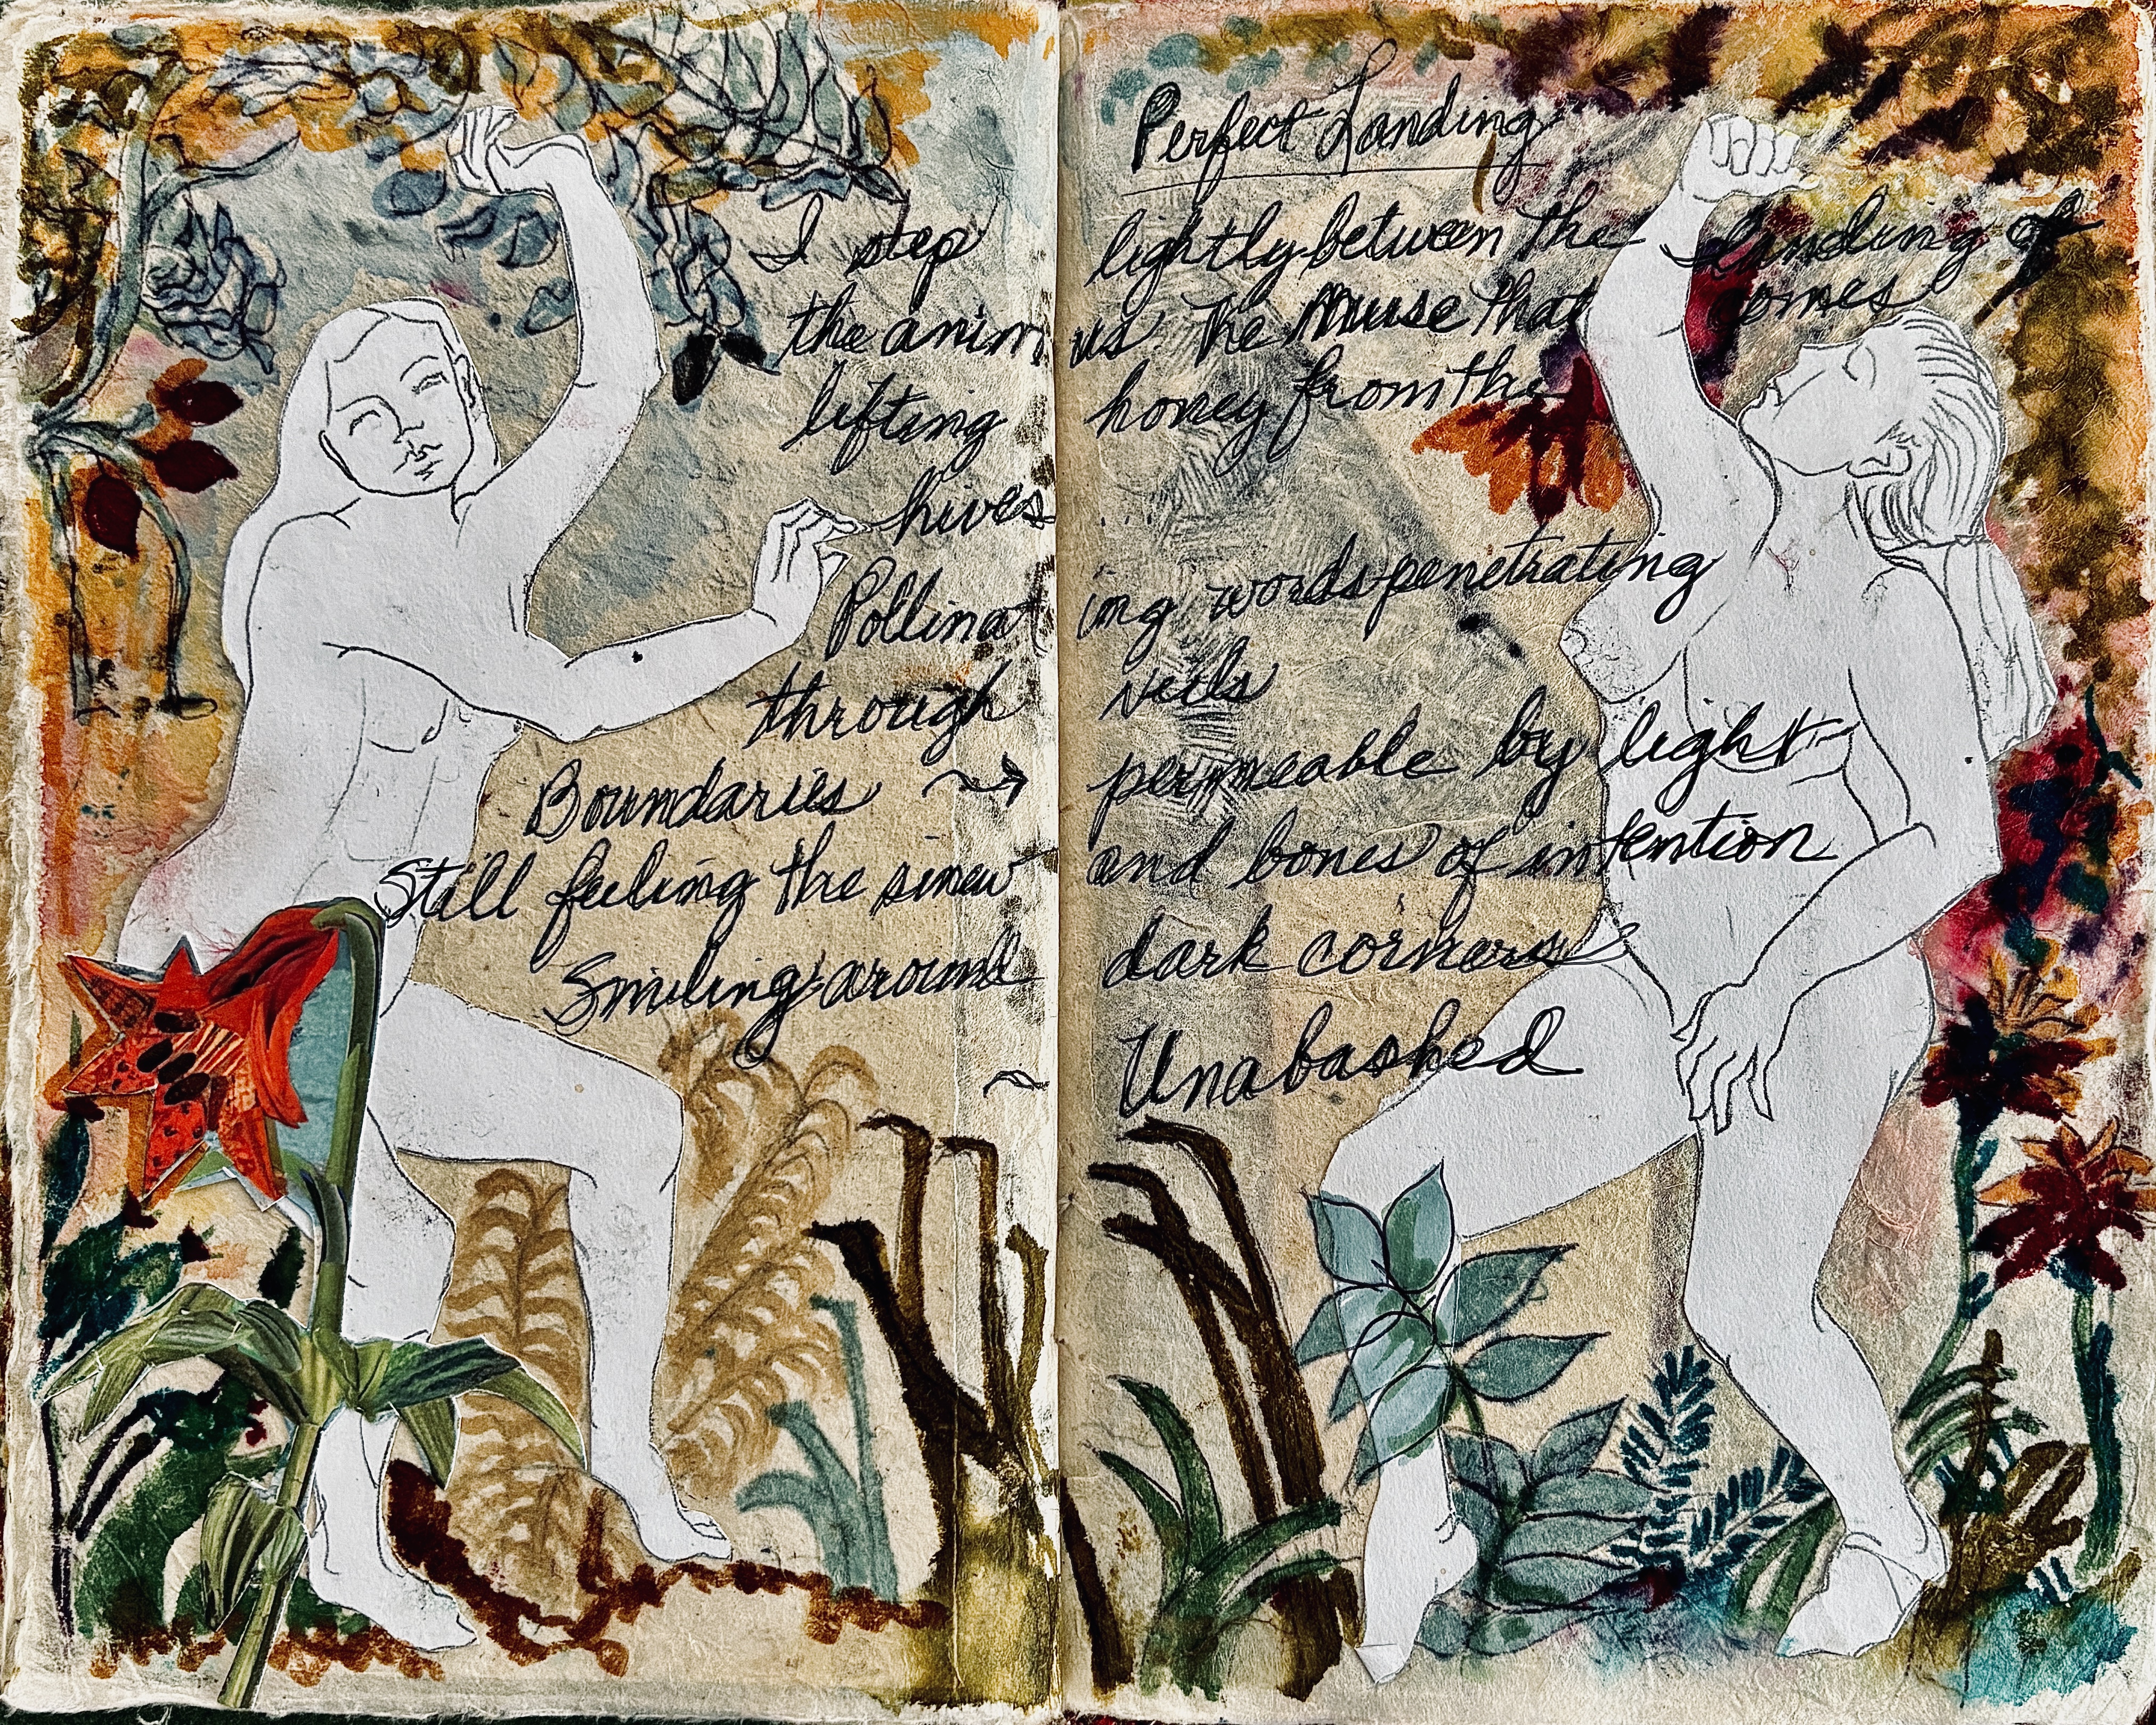 Perfect Landing
I step lightly between the landing of
the animus The Muse that omes
lifting honey from the
hives ...
Pollinating words penetrating
through veils
Boundaries → permeable by light
Still feeling the sinew and bones of intention
Smiling around dark corners
~ Unabashed